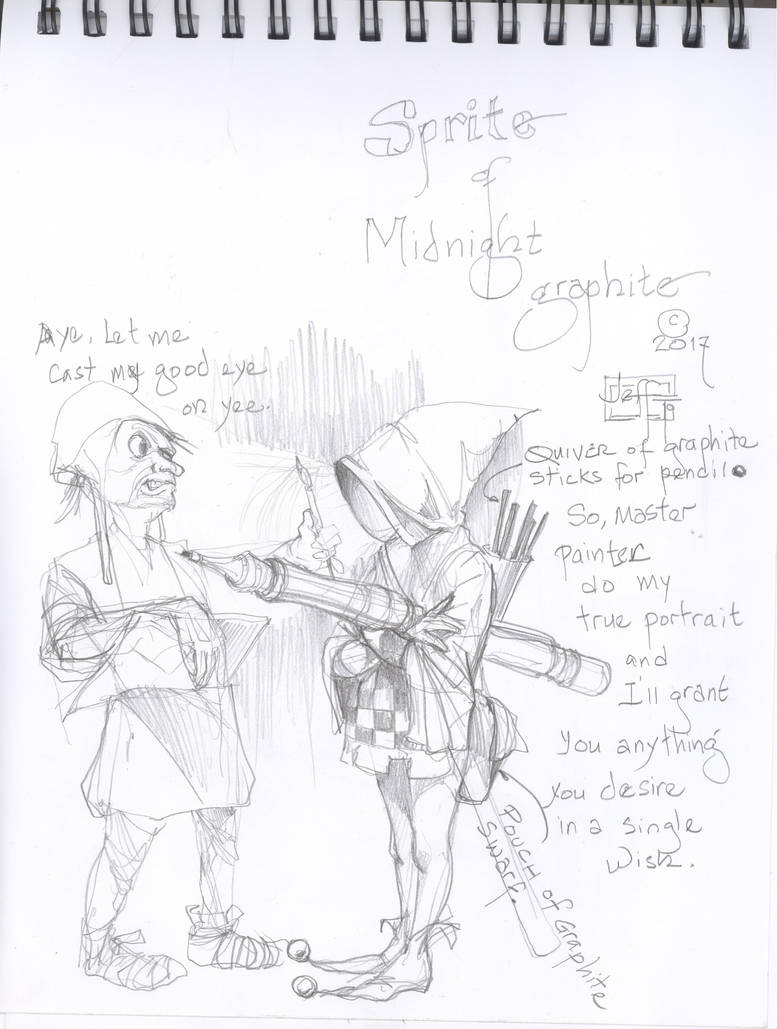 Sprite
of
Midnight
graphite
© 2017
Jeff
19
Aye, Let me
cast my good eye
on yee.
QUIVER of graphite
sticks for pencil.
So, Master
painter
do my
true portrait
and
I'll grant
you anything
you desire
in a single
wish.
Pouch of Graphite
swarf.